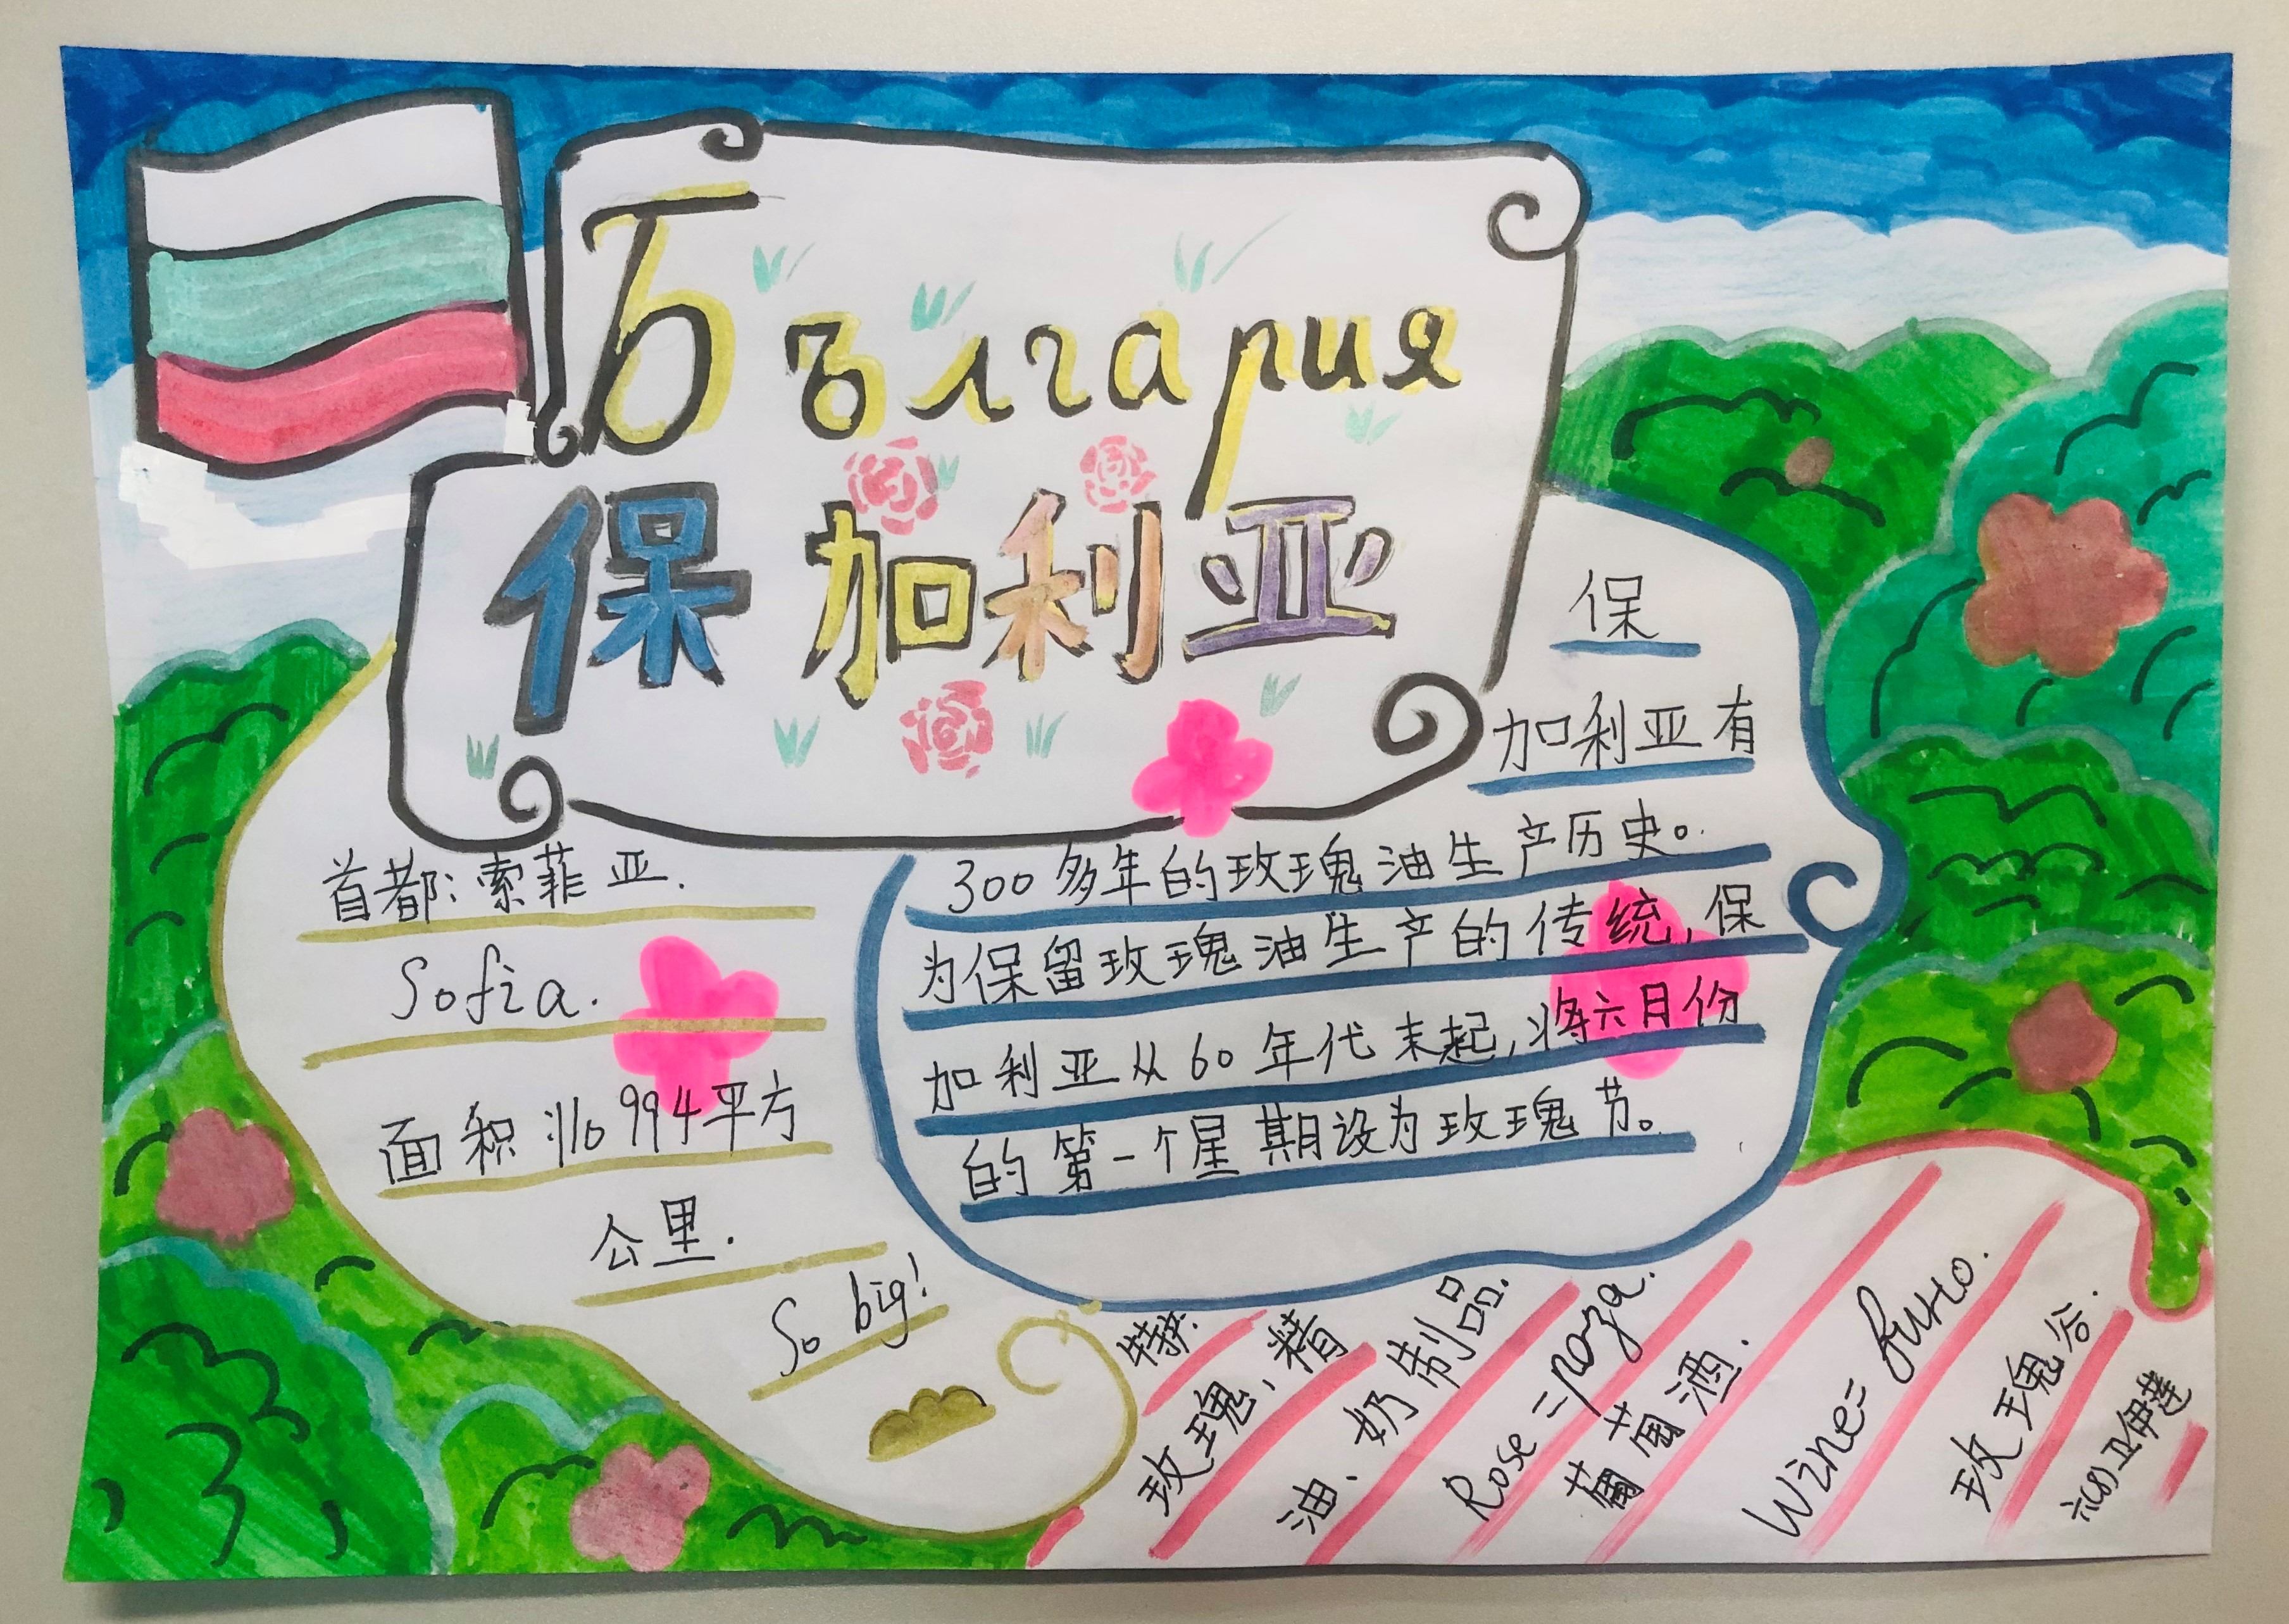 България
保加利亚
首都:索菲亚.
Sofia.
面积110994平方
公里.
So big!
保
加利亚有
300多年的玫瑰油生产历史。
为保留玫瑰油生产的传统,保
加利亚从60年代末起,将六月份
的第一个星期设为玫瑰节。
特产:
玫瑰、精
油、奶制品.
Rose=роза.
葡萄酒.
Wine=вино.
玫瑰谷.
卫伊莲